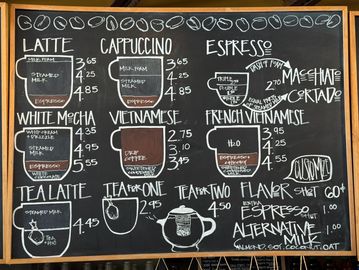 LATTE
MILK FOAM
STEAMED
MILK
ESPRESSO
3.65
4.25
4.85
CAPPUCCINO
MILK FOAM
STEAMED
MILK
ESPRESSO
3.65
4.25
4.85
ESPRESSO
TRIPLE
DOUBLE
2.70
MACCHIATO
CORTADO
WHITE MOCHA
STEAMED
MILK
ESPRESSO
WHITE
4.35
4.95
5.55
VIETNAMESE
DRIP
COFFEE
SWEETENED
2.75
3.10
3.45
FRENCH VIETNAMESE
H2O
ESPRESSO
3.65
4.25
4.85
CUSTOMIZE
TEA LATTE
STEAMED
MILK
TEA
4.45
TEA FOR ONE
2.95
TEA FOR TWO
4.50
FLAVOR SHOT 60¢
EXTRA
ESPRESSO SHOT 1.00
ALTERNATIVE
MILK 1.00
ALMOND, SOY, COCONUT, OAT